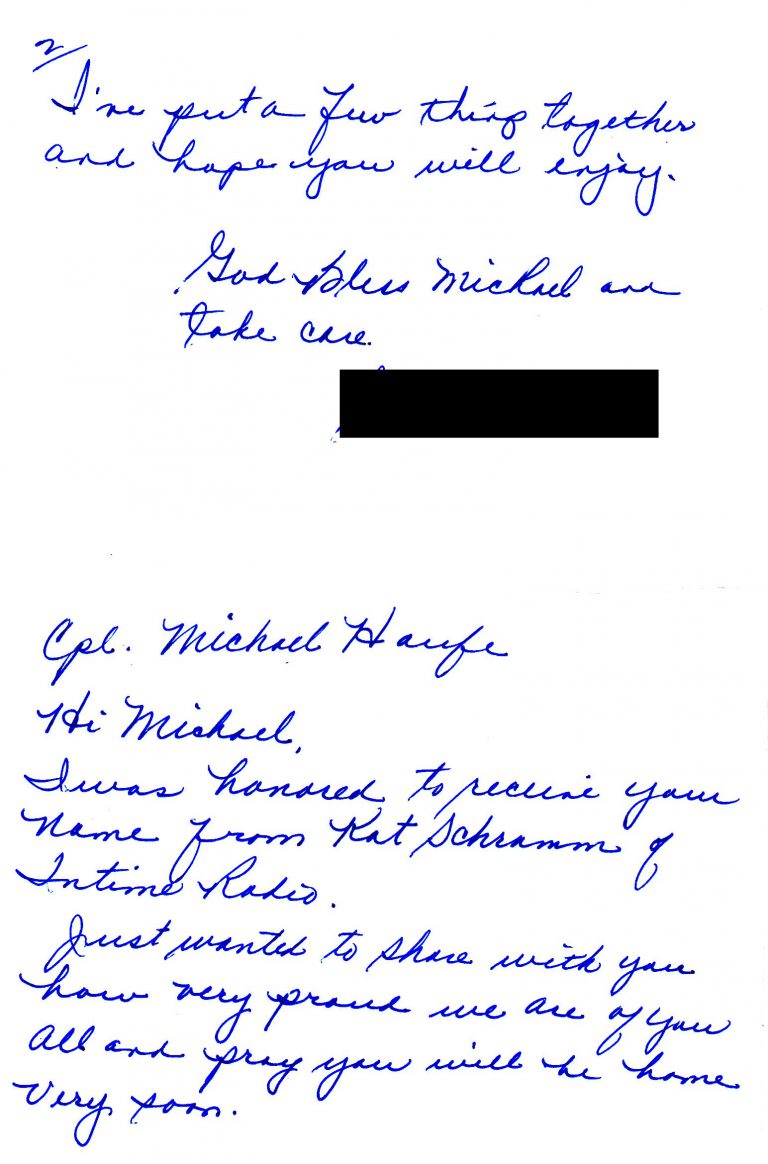 2/
I've put a few things together
and hope you will enjoy.
God Bless Michael and
take care.
Cpl. Michael Haufe
Hi Michael,
I was honored to receive your
Name from Kat Schramm of
Intime Radio.
Just wanted to share with you
how very proud we are of you
All and pray you will be home
Very soon.